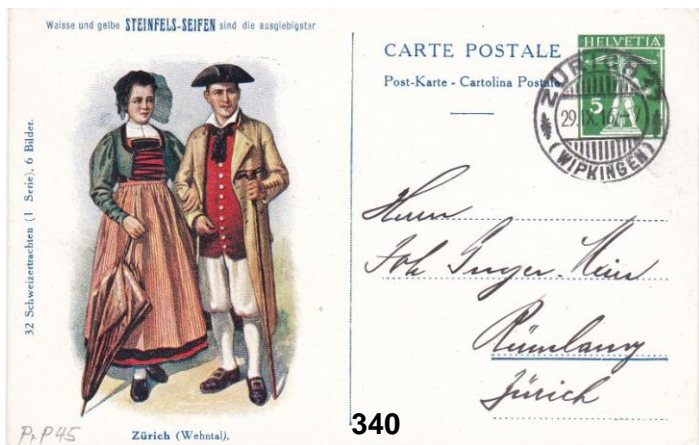 Weisse und gelbe STEINFELS-SEIFEN sind die ausgiebigsten
32 Schweizertrachten (1 Serie), 6 Bilder.
Zürich (Wehntal).
Pr P 45
340
CARTE POSTALE
Post-Karte - Cartolina Postale
HELVETIA
5
ZÜRICH
29.IX.16.
(WIPKINGEN)
Herrn
Joh
Rümlang
Zürich